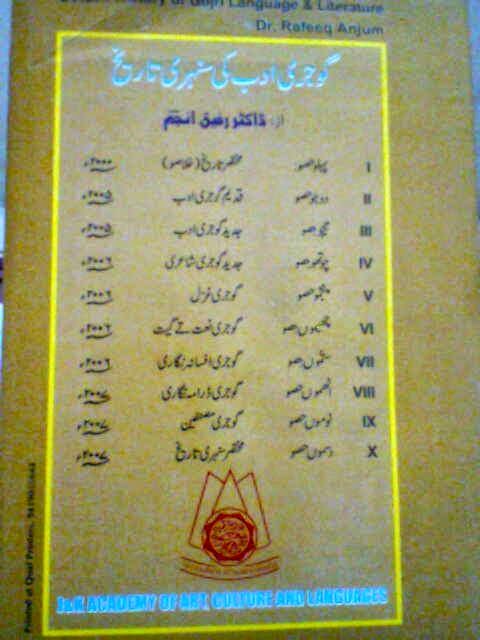 History of Gojri Language & Literature
Dr. Rafeeq Anjum
گوجری ادب کی سنہری تاریخ
از: ڈاکٹر رفیق انجم
I پہلو حصو مختصر تاریخ (خلاصو) ۲۰۰۰ء
II دوجو حصو قدیم گوجری ادب ۲۰۰۵ء
III تیجو حصو جدید گوجری ادب ۲۰۰۵ء
IV چوتھو حصو جدید گوجری شاعری ۲۰۰۶ء
V پنجو حصو گوجری غزل ۲۰۰۶ء
VI چھیموں حصو گوجری نعت تے گیت ۲۰۰۶ء
VII ستموں حصو گوجری افسانہ نگاری ۲۰۰۶ء
VIII اٹھموں حصو گوجری ڈرامہ نگاری ۲۰۰۷ء
IX نوموں حصو گوجری مصنفین ۲۰۰۷ء
X دسموں حصو مختصر سنہری تاریخ ۲۰۰۷ء
J&K ACADEMY OF ART, CULTURE AND LANGUAGES
Printed at Qual Printers,